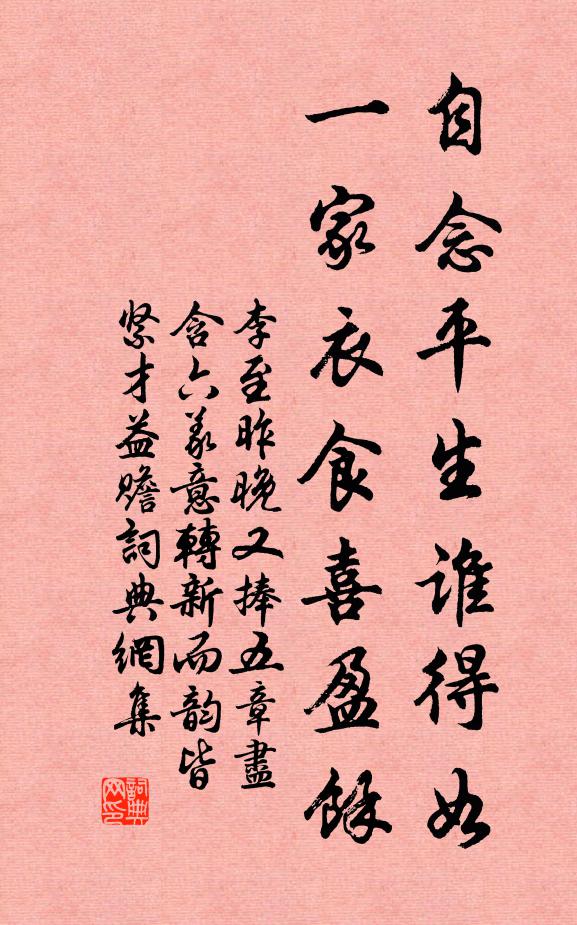 自念平生誰得如
一家衣食喜盈餘
李至昨晚又捧五章盡
含六義意轉新而韵皆
緊才益贍詞典網集
詞典
网印